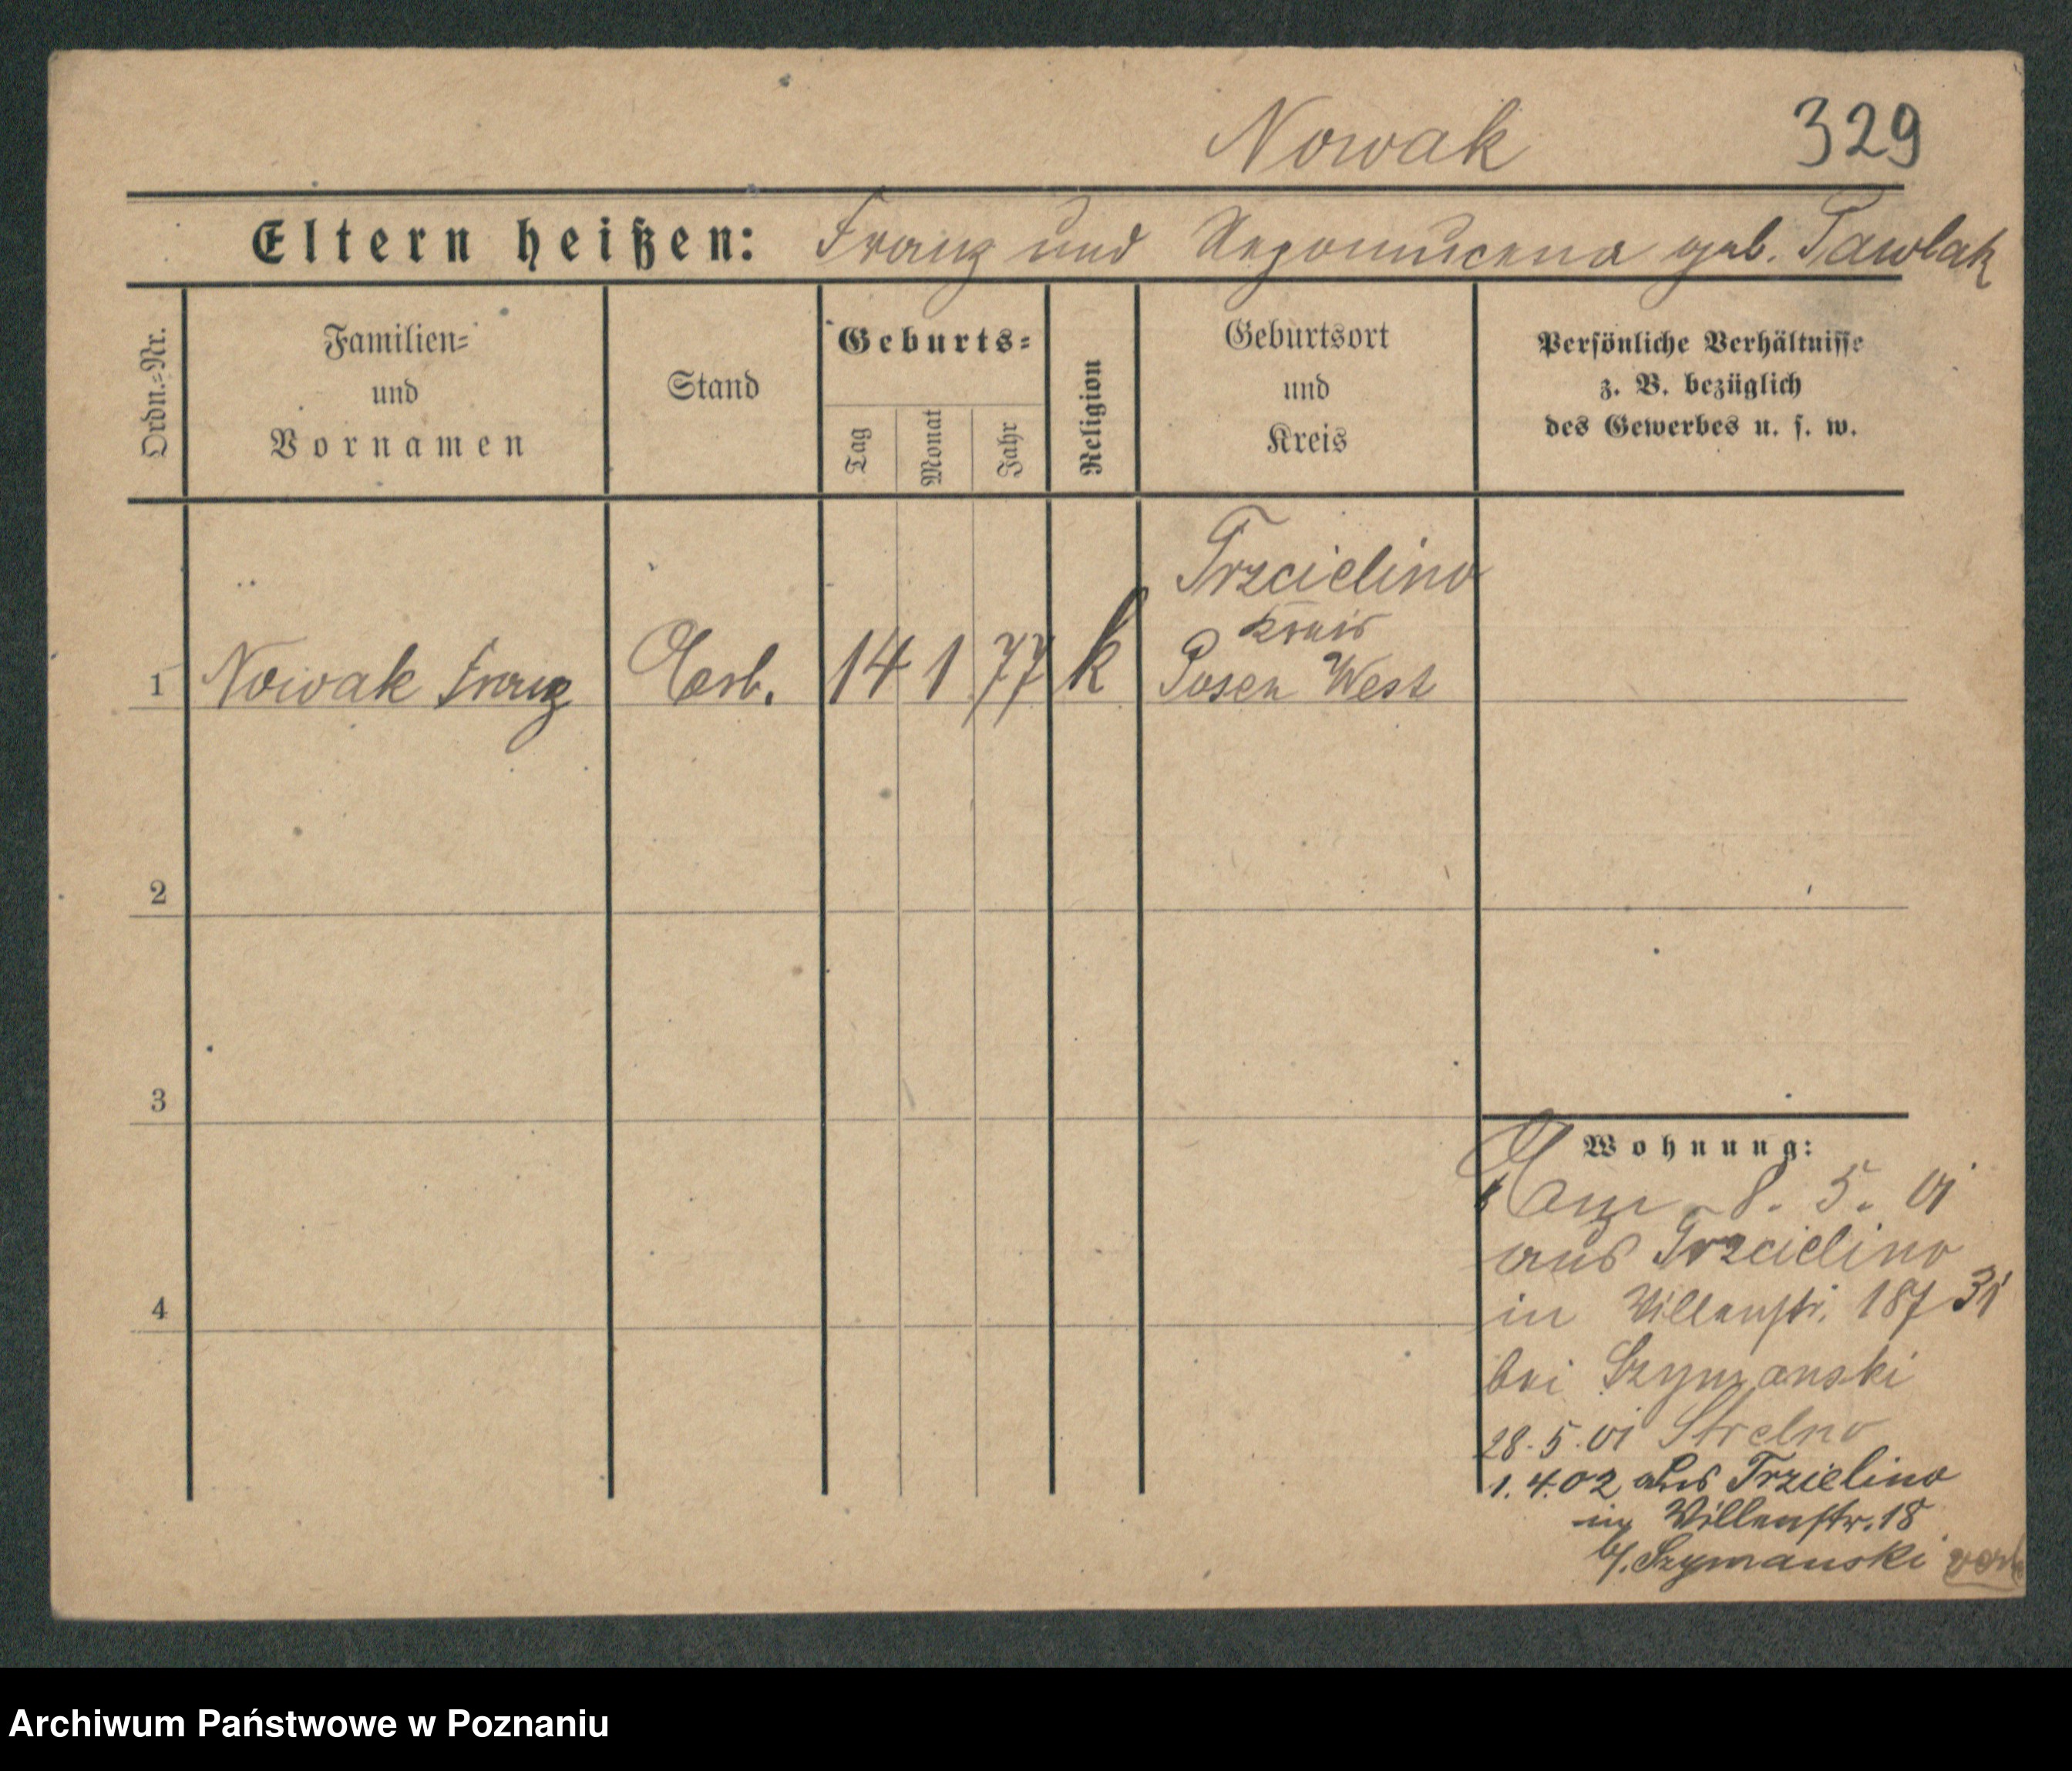 Nowak 329
Eltern heißen: Franz und Nepomucena geb. Pawlak
Ordn.=Nr.
Familien=
und
Vornamen
Stand
Geburts=
Tag
Monat
Jahr
Religion
Geburtsort
und
Kreis
Persönliche Verhältnisse
z. B. bezüglich
des Gewerbes u. s. w.
Trzcielino
Kreis
1 Nowak Franz Arb. 14 1 77 k Posen West
2
3
4
Wohnung:
8. 5. 01
aus Trzcielino
in Villenstr. 18
bei Szymanski
28. 5. 01 Strelno
1. 4. 02 aus Trzielino
in Villenstr. 18
b/. Szymanski
Archiwum Państwowe w Poznaniu